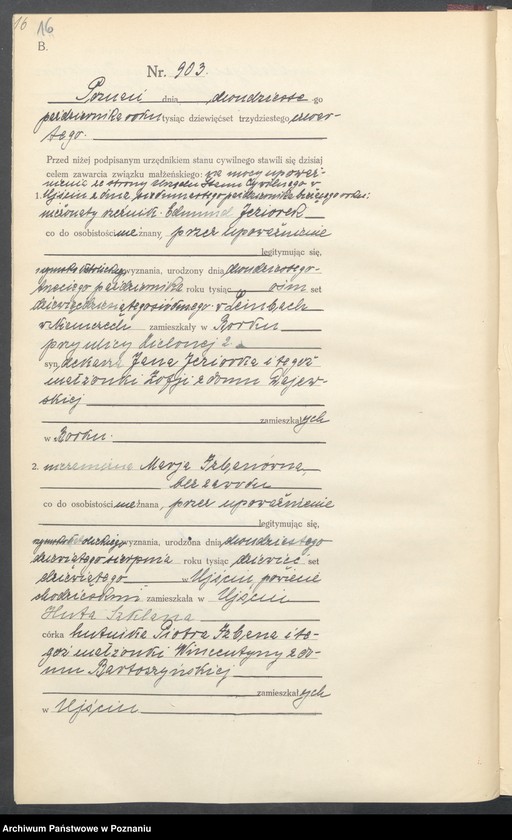 16 16
B.
Nr. 903.
Poznań dnia dwudziesto -go
października roku tysiąc dziewięćset trzydziestego czwar-
tego.
Przed niżej podpisanym urzędnikiem stanu cywilnego stawili się dzisiaj
celem zawarcia związku małżeńskiego: na mocy upoważ-
nienia ze strony Urzędu Stanu Cywilnego w
Ujściu z dnia października bieżącego roku:
1. nieżonaty Edmund Jeziorek
co do osobistości nieznany, przez upoważnienie
legitymując się,
wyznania, urodzony dnia dwudziestego
października roku tysiąc osim set
dziewięćdziesiątegosiódmego w Leinbach
w Niemczech zamieszkały w Borku
przy ulicy Zielonej 2
syn dekarza Jana Jeziorka i tegoż
małżonki Zofji z domu Majew-
skiej
zamieszkałych
w Borku.
2. niezamężna Marja Izbanówna,
bez zawodu
co do osobistości nieznana, przez upoważnienie
legitymując się,
wyznania, urodzona dnia dwudziestego
dziewiątego sierpnia roku tysiąc dziewięć set
dziewiątego w Ujściu, powiecie
chodzieskimi zamieszkała w Ujściu
Huta Szklana
córka hutnika Piotra Izbana i te-
goż małżonki Wincentyny z do-
mu Bartoszyńskiej
zamieszkałych
w Ujściu
Archiwum Państwowe w Poznaniu